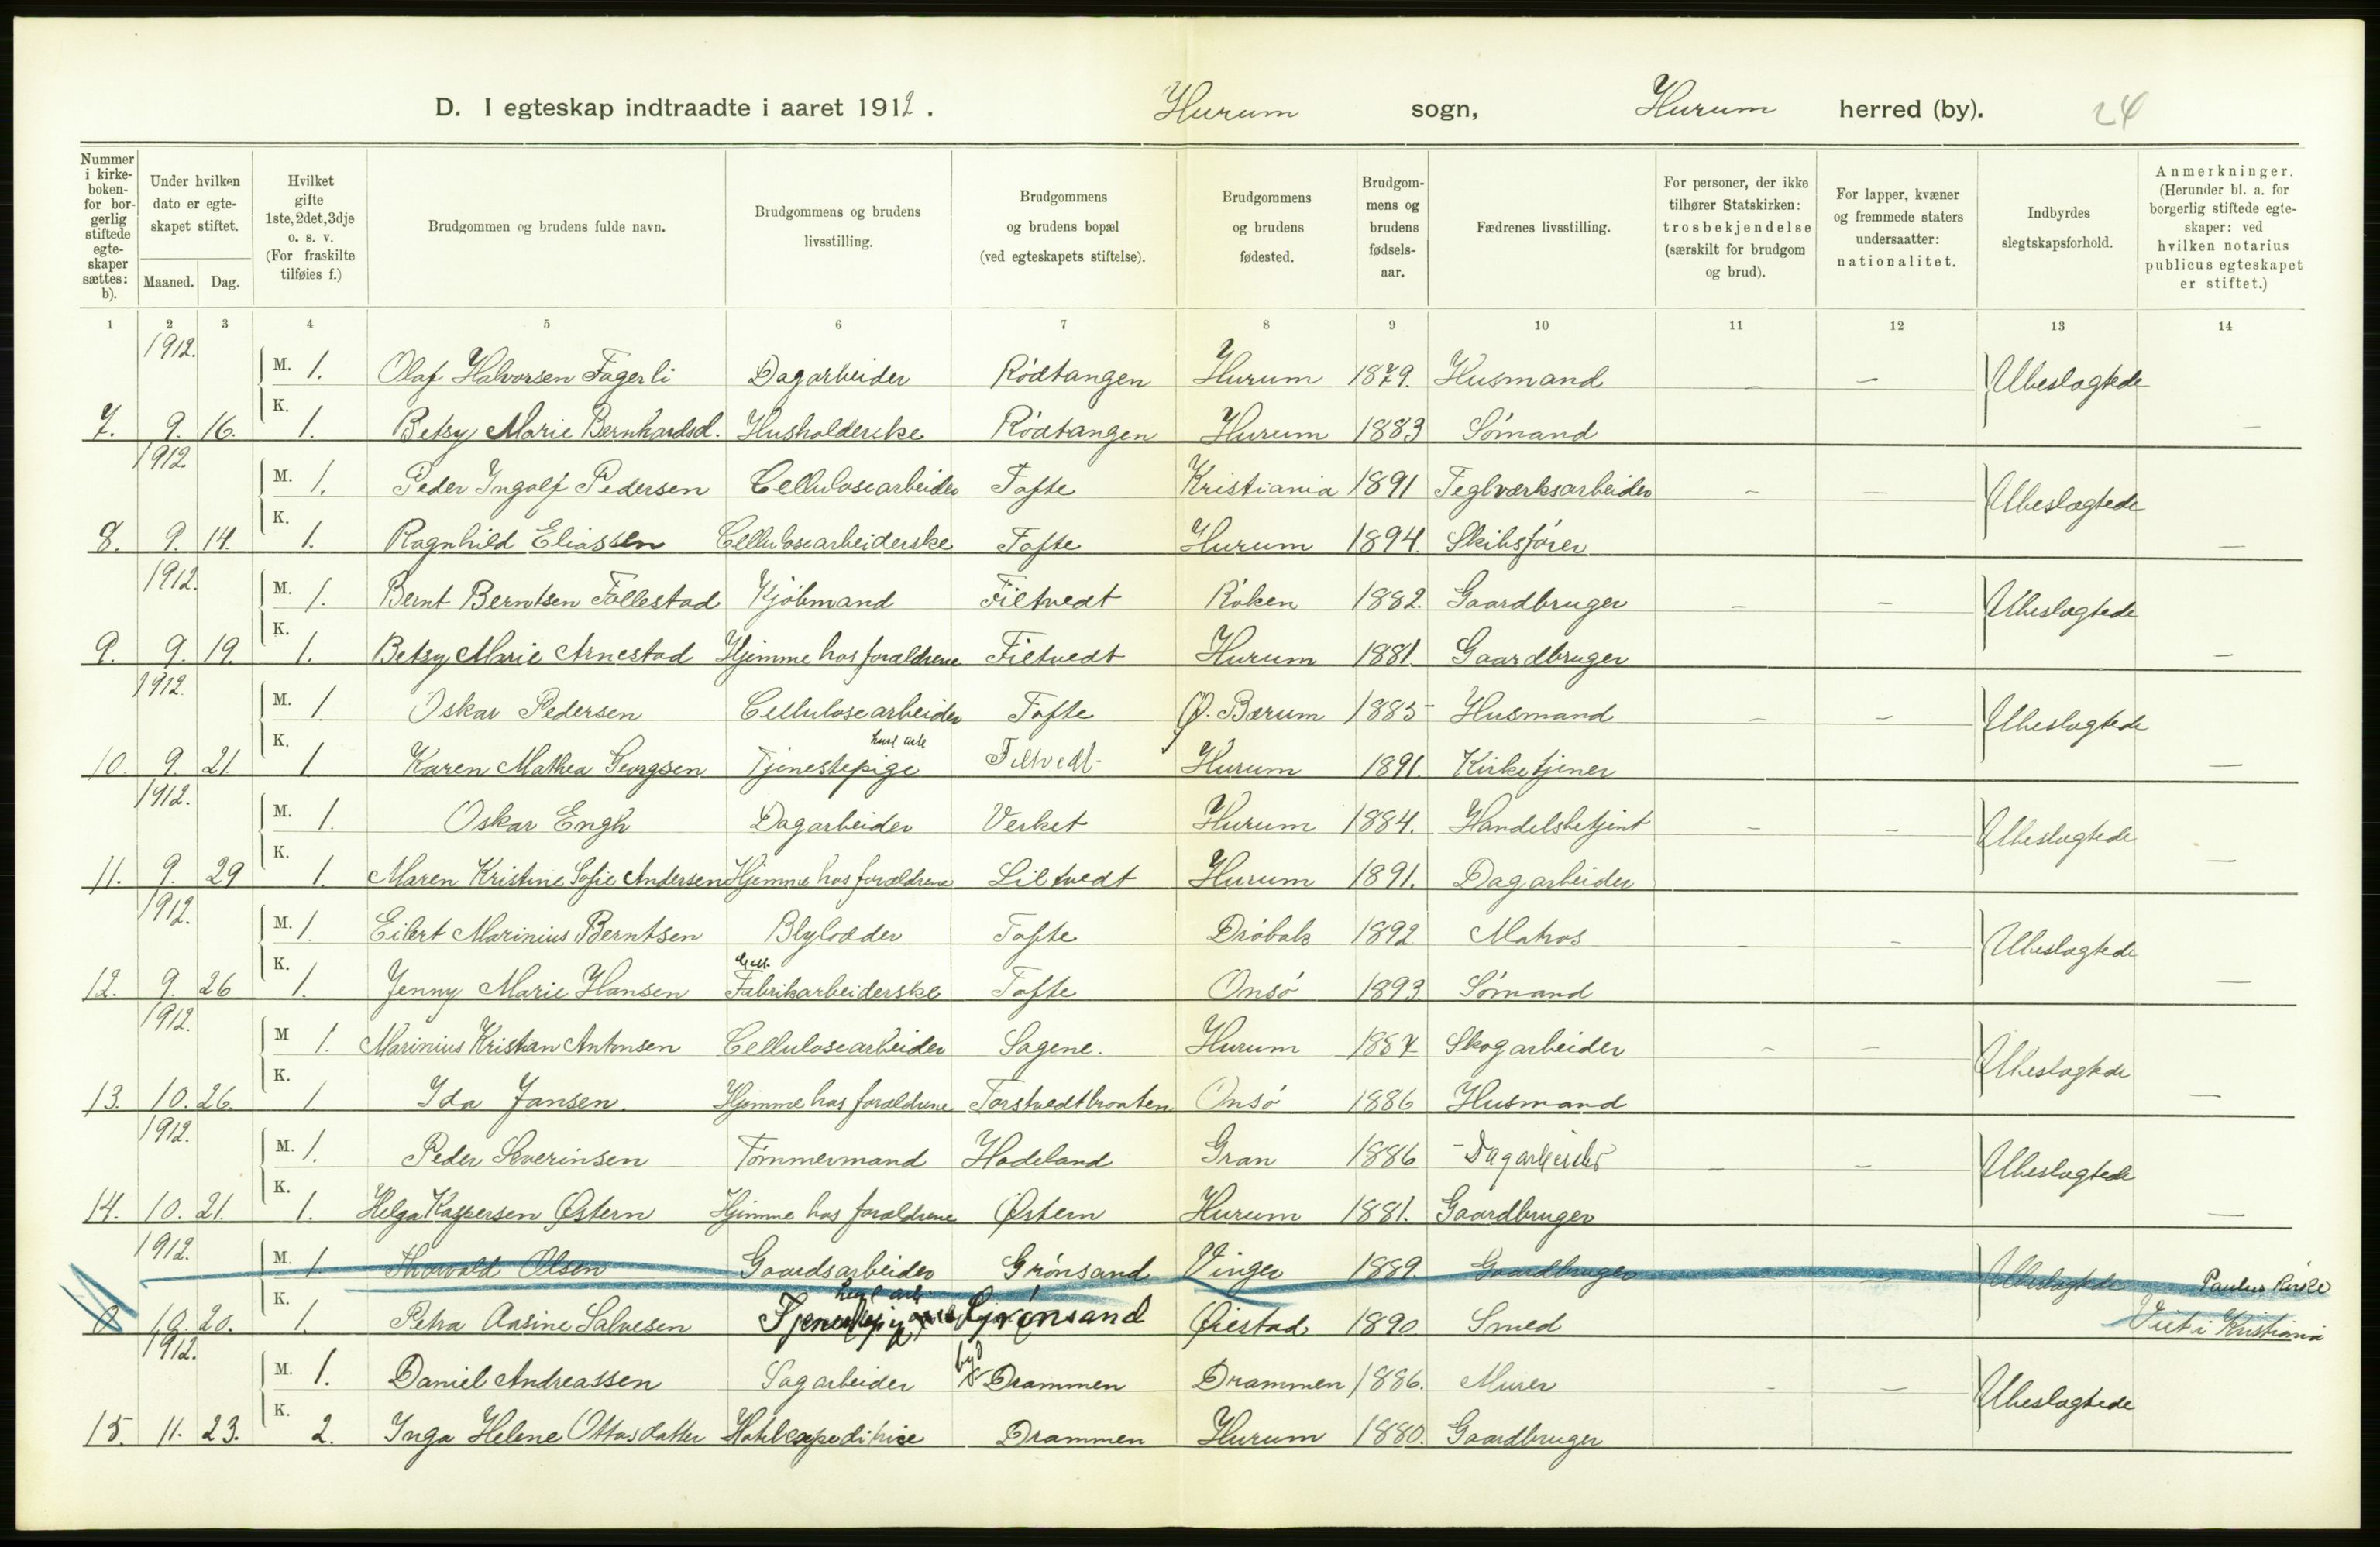 D. I egteskap indtraadte i aaret 1912. Hurum sogn, Hurum herred (by). 24
Nummer i kirkeboken- for borgerlig stiftede egteskaper sættes: b).
Under hvilken dato er egteskapet stiftet.
Maaned. Dag.
Hvilket gifte 1ste, 2det, 3dje o. s. v. (For fraskilte tilføies f.)
Brudgommen og brudens fulde navn.
Brudgommens og brudens livsstilling.
Brudgommens og brudens bopæl (ved egteskapets stiftelse).
Brudgommens og brudens fødested.
Brudgommens og brudens fødselsaar.
Fædrenes livsstilling.
For personer, der ikke tilhører Statskirken: trosbekjendelse (særskilt for brudgom og brud).
For lapper, kvæner og fremmede staters undersaatter: nationalitet.
Indbyrdes slegtskapsforhold.
Anmerkninger. (Herunder bl. a. for borgerlig stiftede egteskaper: ved hvilken notarius publicus egteskapet er stiftet.)
1 2 3 4 5 6 7 8 9 10 11 12 13 14
1912. M. 1. Olaf Halvorsen Fagerli Dagarbeider Rödtangen Hurum 1879. Husmand — — Ubeslægtede
7. 9. 16. K. 1. Betsy Marie Bernhardsd. Husholderske Rödtangen Hurum 1883 Sömand —
1912 M. 1. Peder Ingolf Pedersen Cellulosearbeider Tofte Kristiania 1891 Teglværksarbeider — — Ubeslægtede
8. 9. 14. K. 1. Ragnhild Eliassen Cellulosearbeiderske Tofte Hurum 1894. Skibsförer —
1912. M. 1. Bernt Berntsen Follestad Kjöbmand Filtvedt Röken 1882. Gaardbruger — — Ubeslægtede
9. 9. 19. K. 1. Betsy Marie Arnestad Hjemme hos forældrene Filtvedt Hurum 1881. Gaardbruger —
1912. M. 1 Oskar Pedersen Cellulosearbeider Tofte Ø. Bærum 1885 Husmand — — Ubeslægtede
10. 9. 21. K. 1 Karen Mathea Georgsen Tjenestepige Filtvedt Hurum 1891. Kirketjener —
1912. M. 1. Oskar Engh Dagarbeider Verket Hurum 1884. Handelsbetjent — — Ubeslægtede
11. 9. 29 K. 1. Maren Kristine Sofie Andersen Hjemme hos forældrene Liltvedt Hurum 1891. Dagarbeider —
1912. M. 1. Eilert Marinius Berntsen Blylodder Tofte Dröbak 1892 Matros — — Ubeslægtede
12. 9. 26 K. 1. Jenny Marie Hansen Fabrikarbeiderske Tofte Onsö 1893. Sömand —
1912. M 1. Marinius Kristian Antonsen Cellulosearbeider Sagene. Hurum 1887 Skogarbeider — — Ubeslægtede
13. 10. 26. K. 1. Ida Jansen. Hjemme hos forældrene Torstvedtbraaten Onsö 1886 Husmand —
1912. M. 1. Peder Severinsen Tömmermand Hadeland Gran 1886 Dagarbeider — — Ubeslægtede
14. 10. 21. K. 1. Helga Kaspersen Østern Hjemme hos forældrene Østern Hurum 1881. Gaardbruger —
1912. M. 1. Thorvald Olsen Gaardsarbeider Grönsand Vinger 1889. Gaardbruger — Ubeslægtede Paulus Kirke
0 10. 20. K. 1. Petra Aasine Salvesen Tjenestepige Grönsand Øiestad 1890 Smed Viet i Kristiania
1912. M. 1. Daniel Andreassen Sagarbeider Drammen Drammen 1886. Murer — — Ubeslægtede
15. 11. 23. K. 2. Inga Helene Ottosdatter Hotelexpeditrice Drammen Hurum 1880. Gaardbruger